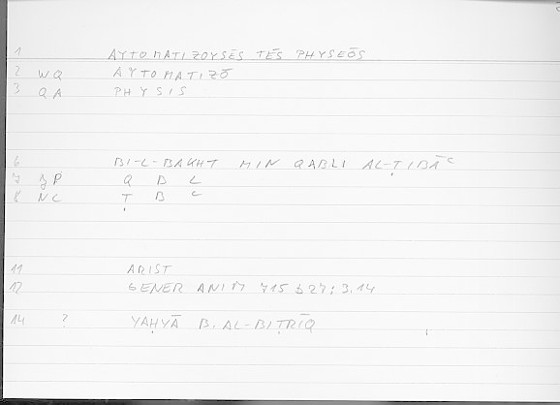 1 AYTOMATIZOYSĒS TĒS PHYSEŌS
2 WQ AYTOMATIZŌ
3 QA PHYSIS
6 BI-L-BAKHT MIN QABLI AL-ṬIBĀʿ
7 ȝP Q B L
8 NC Ṭ B ʿ
11 ARIST
12 GENER ANIM 715 b27; 3.14
14 ? YAḤYĀ B. AL-BIṬRĪQ